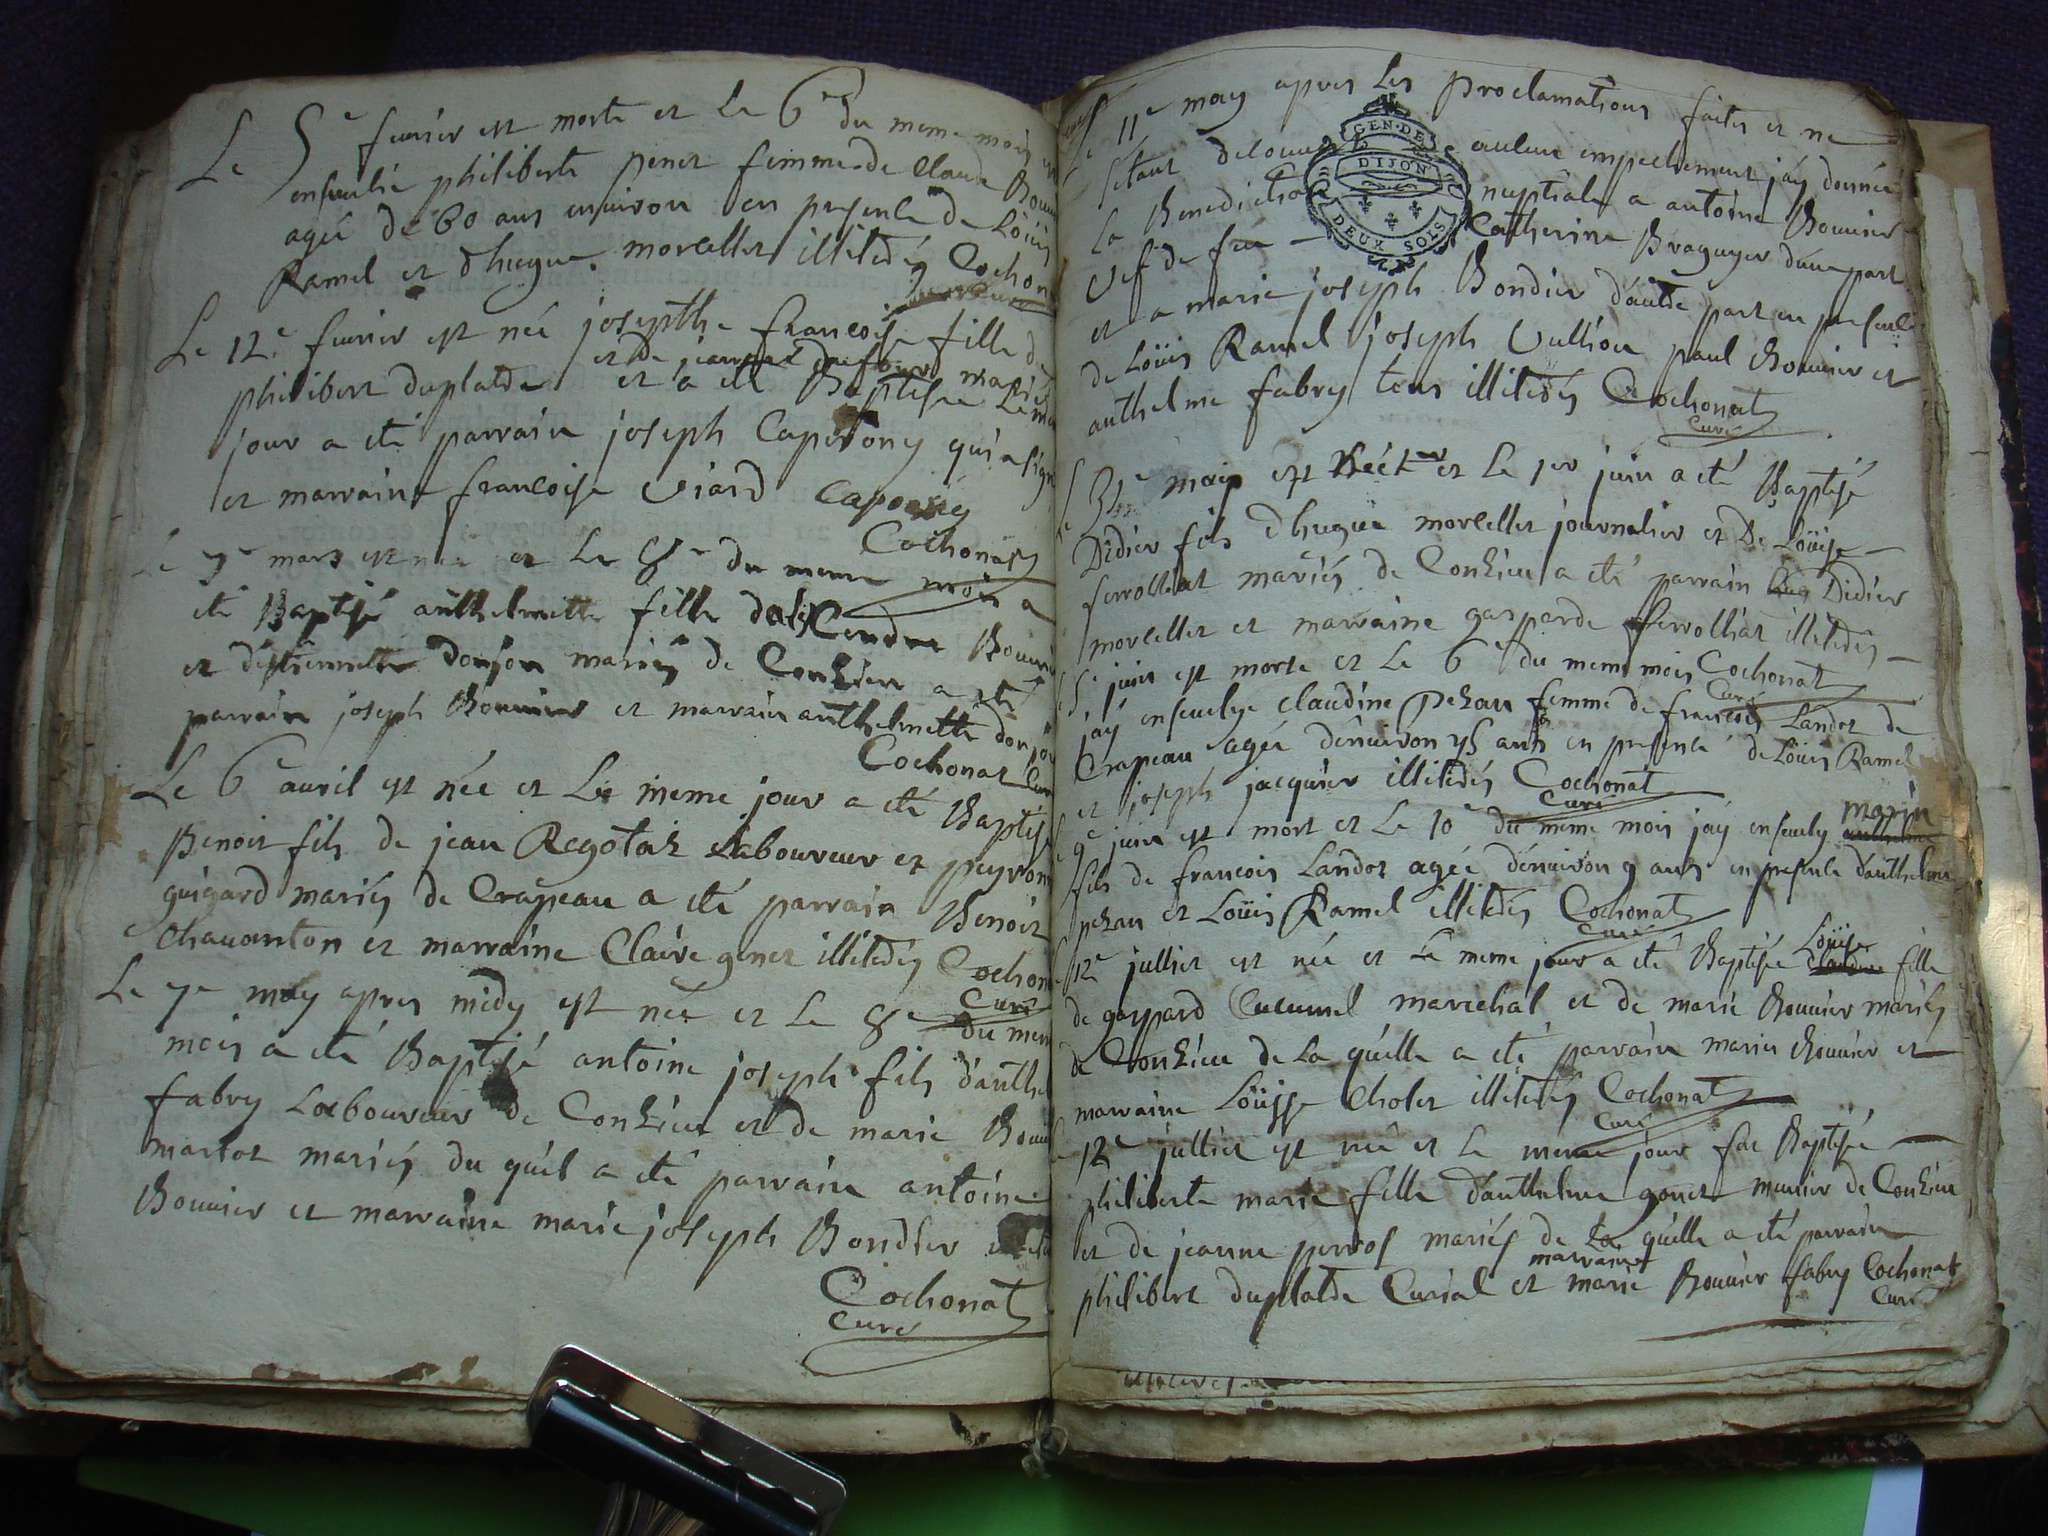 Le 5e fevrier est morte et le 6e du meme mois
ensevelie philiberte penet femme de Claude
agée de 60 ans environ en presence de Loüis
Ramel et d'hugue morellet illitérés Cochonat
Curé
Le 12e fevrier est née josepthe francoise fille de
philibert duplatre et de jeanne dufour mariés
et a eté Baptisée le meme
jour a eté parrain joseph Caperony qui a signé
et marraine francoise Viard Caperony
Cochonat
Le 7e mars est née et le 8e du meme mois a
eté Baptisé anthelmette fille d'alexandre Bouvier
et d'estiennette donjon mariés de Conzieu a eté
parrain joseph Bouvier et marraine anthelmette donjon
Cochonat Curé
Le 6e avril est née et Le meme jour a eté Baptisé
Benoit fils de jean Regotaz Laboureur et peyronne
guigard mariés de Crapeau a eté parrain Benoit
Chavanton et marraine Claire genet illitérés Cochonat
Curé
Le 7e may apres midy est née et le 8e du meme
mois a eté Baptisé antoine joseph fils d'anthelme
fabry Laboureur de Conzieu et de marie Bouvier
martot mariés du quel a eté parrain antoine
Bouvier et marraine marie joseph Bondier
Cochonat
Curé
Le 11e may apres les proclamations faites et ne
s'etant decouvert aucun empechement j'ay donné
GEN. DE
DIJON
DEUX SOLS
la Benediction nuptiale a antoine Bouvier
vef de feu Catherine Braguyer d'une part
et a marie joseph Bondier d'autre part en presence
de Loüis Ramel joseph Vullion paul Bouvier et
anthelme fabry tous illiterés Cochonat
Curé
Le 31e may est né et le 1er juin a eté Baptisé
Didier fils d'hugue morellet journalier et De Loüise
ferrolliat mariés de Conzieu a eté parrain Didier
morellet et marraine gasparde ferrolliat illiterés
Le 5e juin est morte et le 6e du meme mois Cochonat
Curé
j'ay ensevelye claudine pezan femme de francois Landoz de
Crapeau agée d'environ 45 ans en presence de Loüis Ramel
et joseph jacquier illiterés Cochonat
Curé
Le 9e juin est mort et le 10e du meme mois j'ay ensevely marin
fils de francois Landoz agée d'environ 9 ans en presence d'anthelme
pezan et Loüis Ramel illiterés Cochonat
Curé
Le 12e jullier est née et le meme jour a eté Baptisée Loüise fille
de gaspard Cucumel marechal et de marie Bouvier mariés
de Conzieu de La quelle a eté parrain marin Bouvier et
marraine Loüisse Cholet illiterés Cochonat
Curé
Le 12e jullier est née et le meme jour fut Baptisée
philiberte marie fille d'anthelme gonet munier de Conzieu
et de jeanne perros mariés de La quelle a eté parrain
marraine
philibert duplatre Curial et marie Bouvier fabry Cochonat
Curé